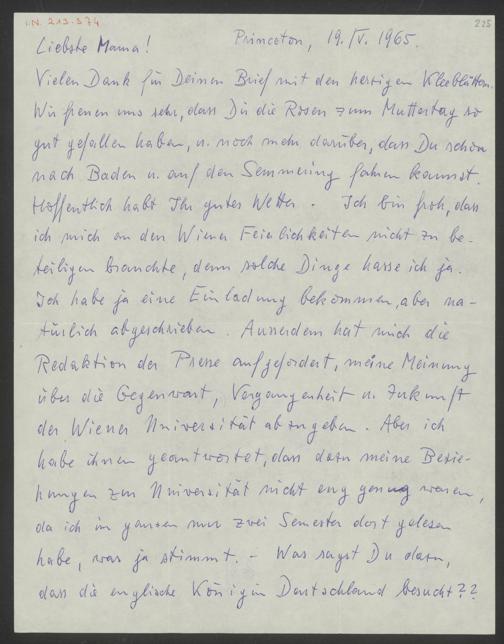 I.N. 213.974
225
Princeton, 19./V. 1965.
Liebste Mama!
Vielen Dank für Deinen Brief mit den herzigen Kleeblüten.
Wir freuen uns sehr, dass Dir die Rosen zum Muttertag so
gut gefallen haben, u. noch mehr darüber, dass Du schon
nach Baden u. auf den Semmering fahren kannst.
Hoffentlich habt Ihr gutes Wetter. Ich bin froh, dass
ich mich an den Wiener Feierlichkeiten nicht zu be-
teiligen brauchte, denn solche Dinge hasse ich ja.
Ich habe ja eine Einladung bekommen, aber na-
türlich abgeschrieben. Ausserdem hat mich die
Redaktion der Presse aufgefordert, meine Meinung
über die Gegenwart, Vergangenheit u. Zukunft
der Wiener Universität abzugeben. Aber ich
habe ihnen geantwortet, dass dazu meine Bezie-
hungen zur Universität nicht eng genug waren,
da ich im ganzen nur zwei Semester dort gelesen
habe, was ja stimmt. – Was sagst Du dazu,
dass die englische Königin Deutschland besucht??